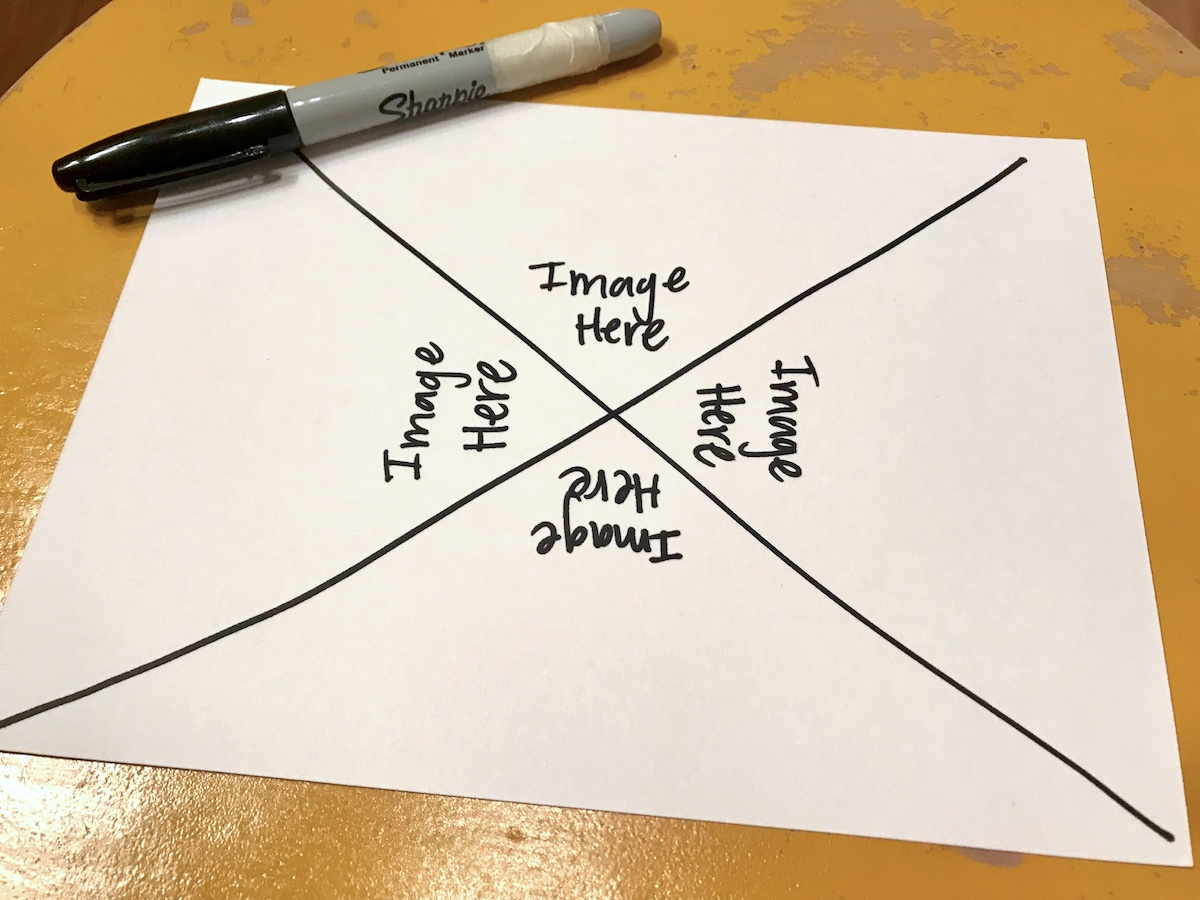 Permanent Marker
Sharpie
Image
Here
Image
Here
Image
Here
Image
Here